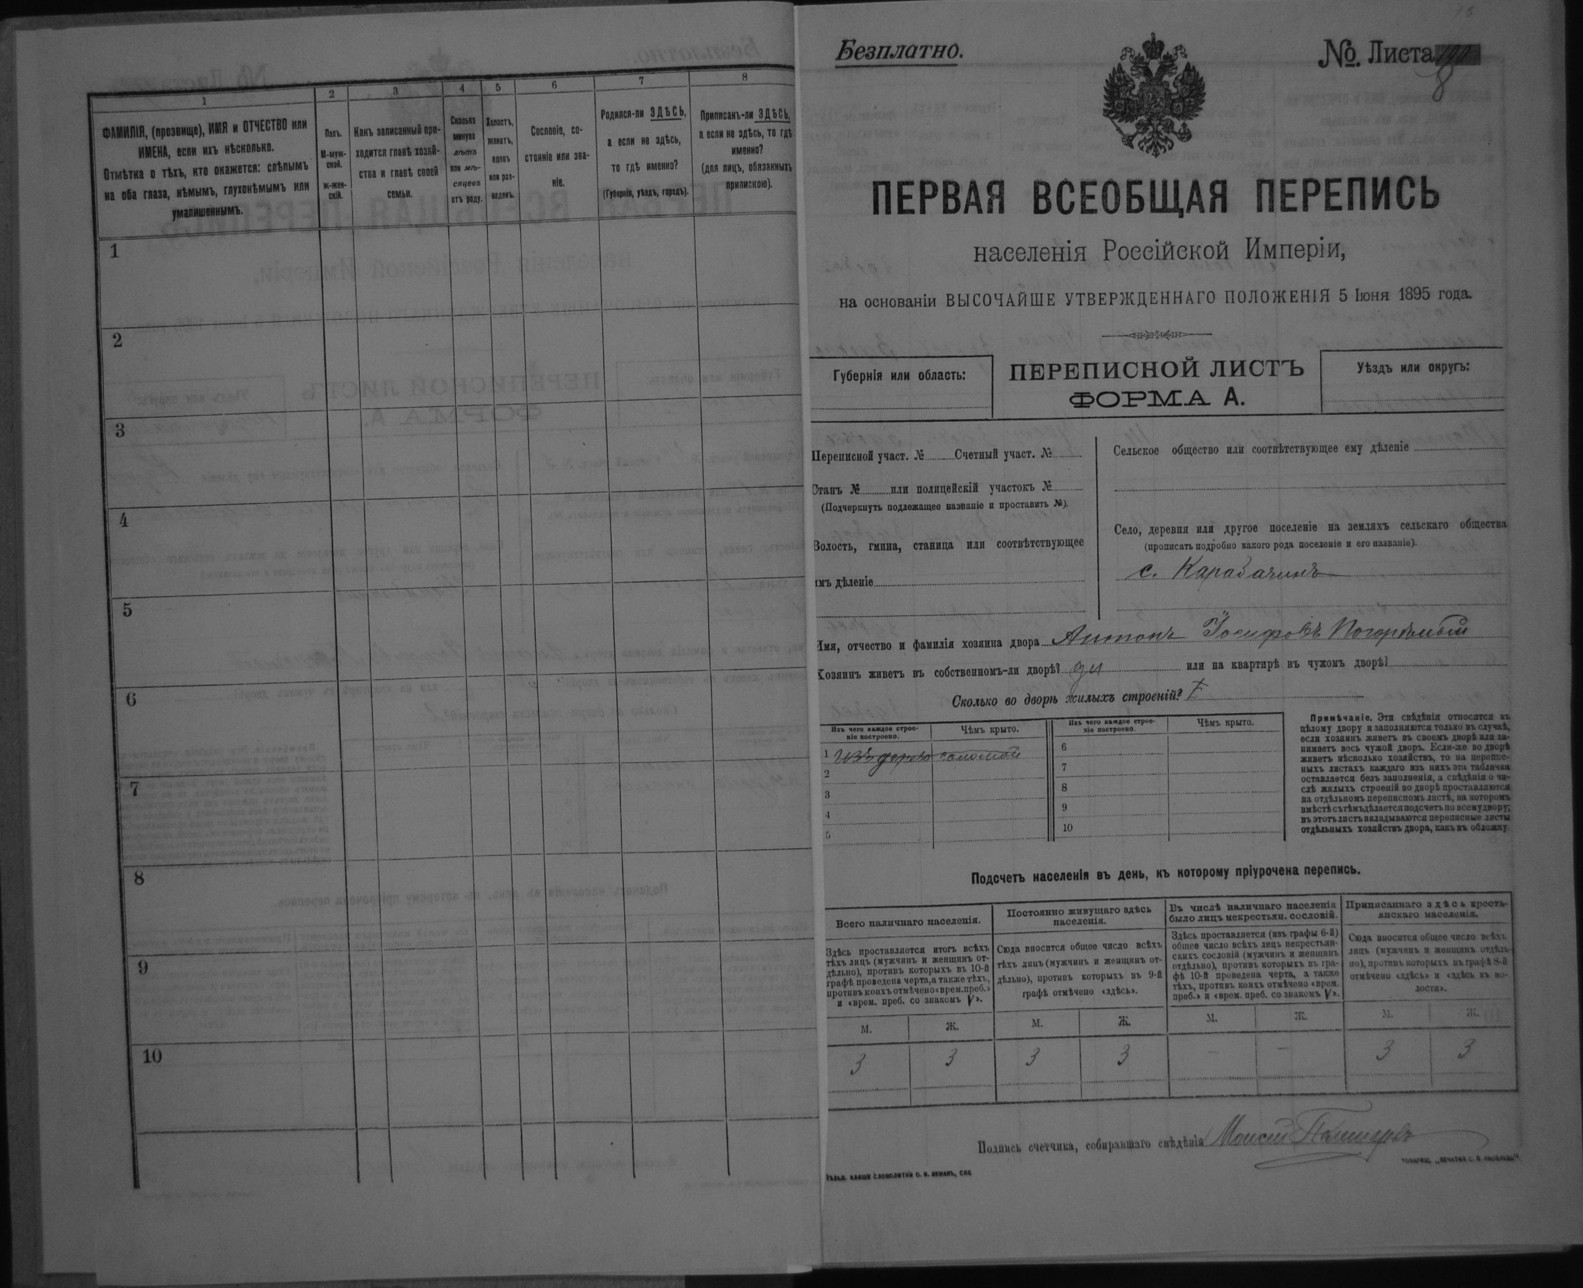 1
2
3
4
5
6
7
8
ФАМИЛІЯ, (прозвище), ИМЯ и ОТЧЕСТВО или
ИМЕНА, если ихъ нѣсколько.
Отмѣтка о тѣхъ, кто окажется: слѣпымъ
на оба глаза, нѣмымъ, глухонѣмымъ или
умалишеннымъ.
Полъ.
М-муж-
ской.
Ж-жен-
скій.
Какъ записанный при-
ходится главѣ хозяй-
ства и главѣ своей
семьи.
Сколько
минуло
лѣтъ
или мѣ-
сяцевъ
отъ роду.
Холостъ,
женатъ,
вдовъ
или раз-
веденъ.
Сословіе, со-
стояніе или зва-
ніе.
Родился-ли ЗДѢСЬ,
а если не здѣсь,
то гдѣ именно?
(Губернія, уѣздъ, городъ).
Приписанъ-ли ЗДѢСЬ,
а если не здѣсь, то гдѣ
именно?
(для лицъ, обязанныхъ
припискою).
1
2
3
4
5
6
7
8
9
10
Безплатно.
№ Листа
8
ПЕРВАЯ ВСЕОБЩАЯ ПЕРЕПИСЬ
населенія Россійской Имперіи,
на основаніи ВЫСОЧАЙШЕ УТВЕРЖДЕННАГО ПОЛОЖЕНІЯ 5 Іюня 1895 года.
Губернія или область:
ПЕРЕПИСНОЙ ЛИСТЪ
ФОРМА А.
Уѣздъ или округъ:
Переписной участ. № Счетный участ. №
Станъ № или полицейскій участокъ №
(Подчеркнуть подлежащее названіе и проставить №).
Волость, гмина, станица или соотвѣтствующее
имъ дѣленіе
Сельское общество или соотвѣтствующее ему дѣленіе
Село, деревня или другое поселеніе на земляхъ сельскаго общества
(прописать подробно какого рода поселеніе и его названіе).
с. Карабачинъ
Имя, отчество и фамилія хозяина двора Антонъ Іосифовъ Погорѣлый
Хозяинъ живетъ въ собственномъ-ли дворѣ? да или на квартирѣ въ чужомъ дворѣ?
Сколько во дворѣ жилыхъ строеній? 1
Изъ чего каждое строе-
ніе построено.
Чѣмъ крыто.
Изъ чего каждое строе-
ніе построено.
Чѣмъ крыто.
1 изъ дерева соломой
2
3
4
5
6
7
8
9
10
Примѣчаніе. Эти свѣдѣнія относятся къ
цѣлому двору и заполняются только въ случаѣ,
если хозяинъ живетъ въ своемъ дворѣ или за-
нимаетъ весь чужой дворъ. Если-же во дворѣ
живетъ нѣсколько хозяйствъ, то на перепис-
ныхъ листахъ каждаго изъ нихъ эта табличка
оставляется безъ заполненія, а свѣдѣнія о чи-
слѣ жилыхъ строеній во дворѣ проставляются
на отдѣльномъ переписномъ листѣ, на которомъ
вмѣстѣ съ тѣмъ дѣлается подсчетъ по всему двору;
въ этотъ листъ вкладываются переписные листы
отдѣльныхъ хозяйствъ двора, какъ въ обложку.
Подсчетъ населенія въ день, къ которому пріурочена перепись.
Всего наличнаго населенія.
Постоянно живущаго здѣсь
населенія.
Въ числѣ наличнаго населенія
было лицъ некрестьян. сословій.
Приписаннаго здѣсь кресть-
янскаго населенія.
Здѣсь проставляется итогъ всѣхъ
тѣхъ лицъ (мужчинъ и женщинъ от-
дѣльно), противъ которыхъ въ 10-й
графѣ проведена черта, а также тѣхъ,
противъ коихъ отмѣчено «врем. преб.»
и «врем. преб. со знакомъ V».
Сюда вносится общее число всѣхъ
тѣхъ лицъ (мужчинъ и женщинъ от-
дѣльно), противъ которыхъ въ 9-й
графѣ отмѣчено «здѣсь».
Здѣсь проставляется (изъ графы 6-й)
общее число всѣхъ лицъ некрестьян-
скихъ сословій (мужчинъ и женщинъ
отдѣльно), противъ которыхъ въ гра-
фѣ 10-й проведена черта, а также
тѣхъ, противъ коихъ отмѣчено «врем.
преб.» и «врем. преб. со знакомъ V».
Сюда вносится общее число всѣхъ
лицъ (мужчинъ и женщинъ отдѣль-
но), противъ которыхъ въ графѣ 8-й
отмѣчено «здѣсь» и «здѣсь въ во-
лости».
М. Ж. М. Ж. М. Ж. М. Ж.
3 3 3 3 - - 3 3
Подпись счетчика, собиравшаго свѣдѣнія Моисей